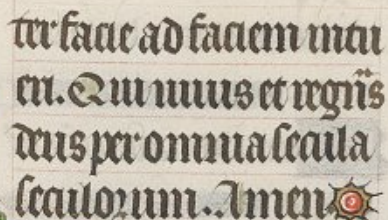 ter facie ad faciem intu
eri. Qui uiuis et regn̄s
deus per omnia secula
seculorum. Amen